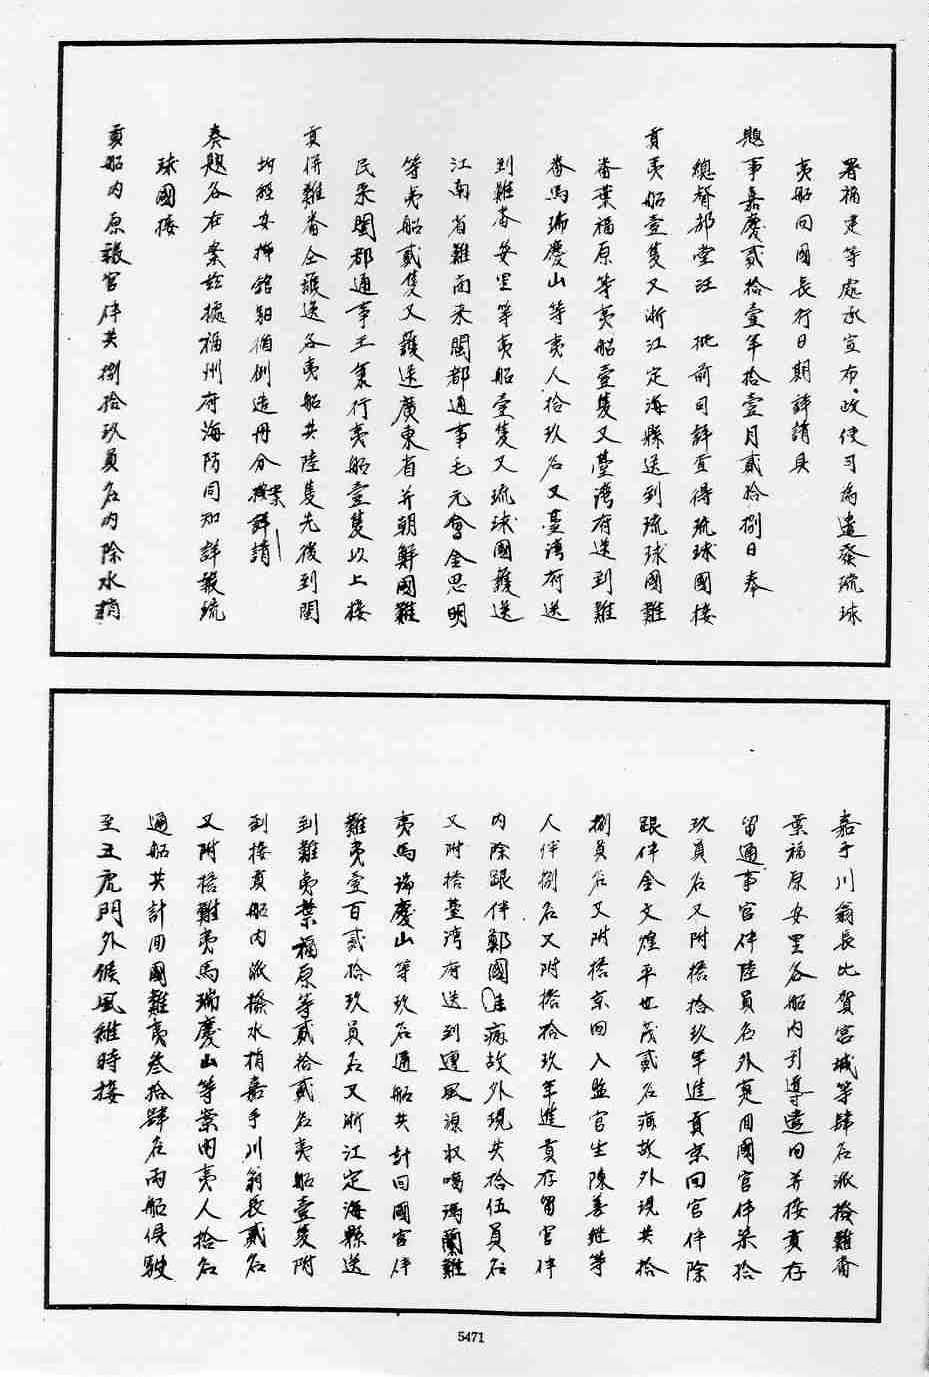 署福建等處承宣布政使司為遣發琉球
夷船回國長行日期詳請具
題事嘉慶貳拾壹年拾壹月貳拾捌日奉
總督部堂汪　批前司詳查得琉球國接
貢夷船壹隻又浙江定海縣送到琉球國難
番葉福原等夷船壹隻又臺灣府送到難
番馬瑞慶山等夷人拾玖名又臺灣府送
到難番安里等夷船壹隻又琉球國護送
江南省難商來閩都通事毛元會金思明
等夷船貳隻又護送廣東省并朝鮮國難
民來閩都通事王秉行夷船壹隻以上接
貢併難番仝護送各夷船共陸隻先後到閩
均經安插館驛循例造冊分案詳請
奏題各在案茲據福州府海防同知詳報琉
球國接
貢船內原報官伴共捌拾玖員名內除水梢
嘉手川翁長比賀宮城等肆名派撥難番
葉福原安里各船內引導遣回并接貢存
留通事官伴陸員名外寔回國官伴柒拾
玖員名又附搭拾玖年進貢京回官伴除
跟伴金文煌平世茂貳名病故外現共拾
捌員名又附搭京回入監官生陳善繼等
人伴捌名又附搭拾玖年進貢存留官伴
內除跟伴鄭國病故外現共拾伍員名
又附搭臺灣府送到遭風源收噶瑪蘭難
夷馬瑞慶山等玖名通船共計回國官伴
難夷壹百貳拾玖員名又浙江定海縣送
到難夷葉福原等貳拾貳名夷船壹隻附
到接貢船內派撥水梢嘉手川翁長貳名
又附搭難夷馬瑞慶山等案內夷人拾名
通船共計回國難夷叁拾肆名兩船俱駛
至五虎門外候風維時接
5471